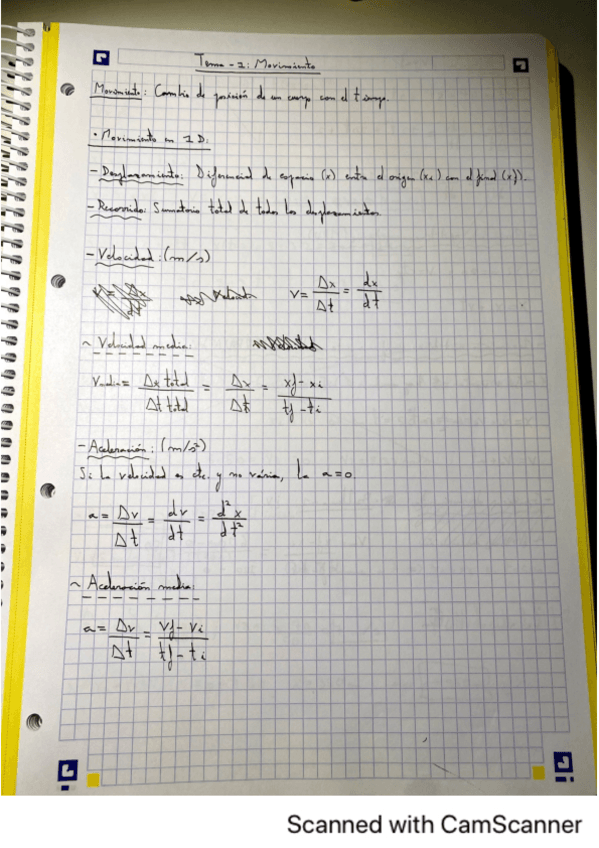 Tema-1: Movimiento
Movimiento: Cambio de posición de un cuerpo con el tiempo.
• Movimiento en 1D:
- Desplazamiento: Diferencial de espacio (x) entre el origen (xi) con el final (xf).
- Recorrido: Sumatorio total de todos los desplazamientos
- Velocidad: (m/s)
v = Δx/Δt = dx/dt
~ Velocidad media:
Vmedia = Δx total/Δt total = Δx/Δt = xf - xi/tf - ti
- Aceleración: (m/s²)
Si la velocidad es cte. y no vária, la a=0
a = Δv/Δt = dv/dt = d²x/dt²
~ Aceleración media:
a = Δv/Δt = vf - vi/tf - ti
Scanned with CamScanner